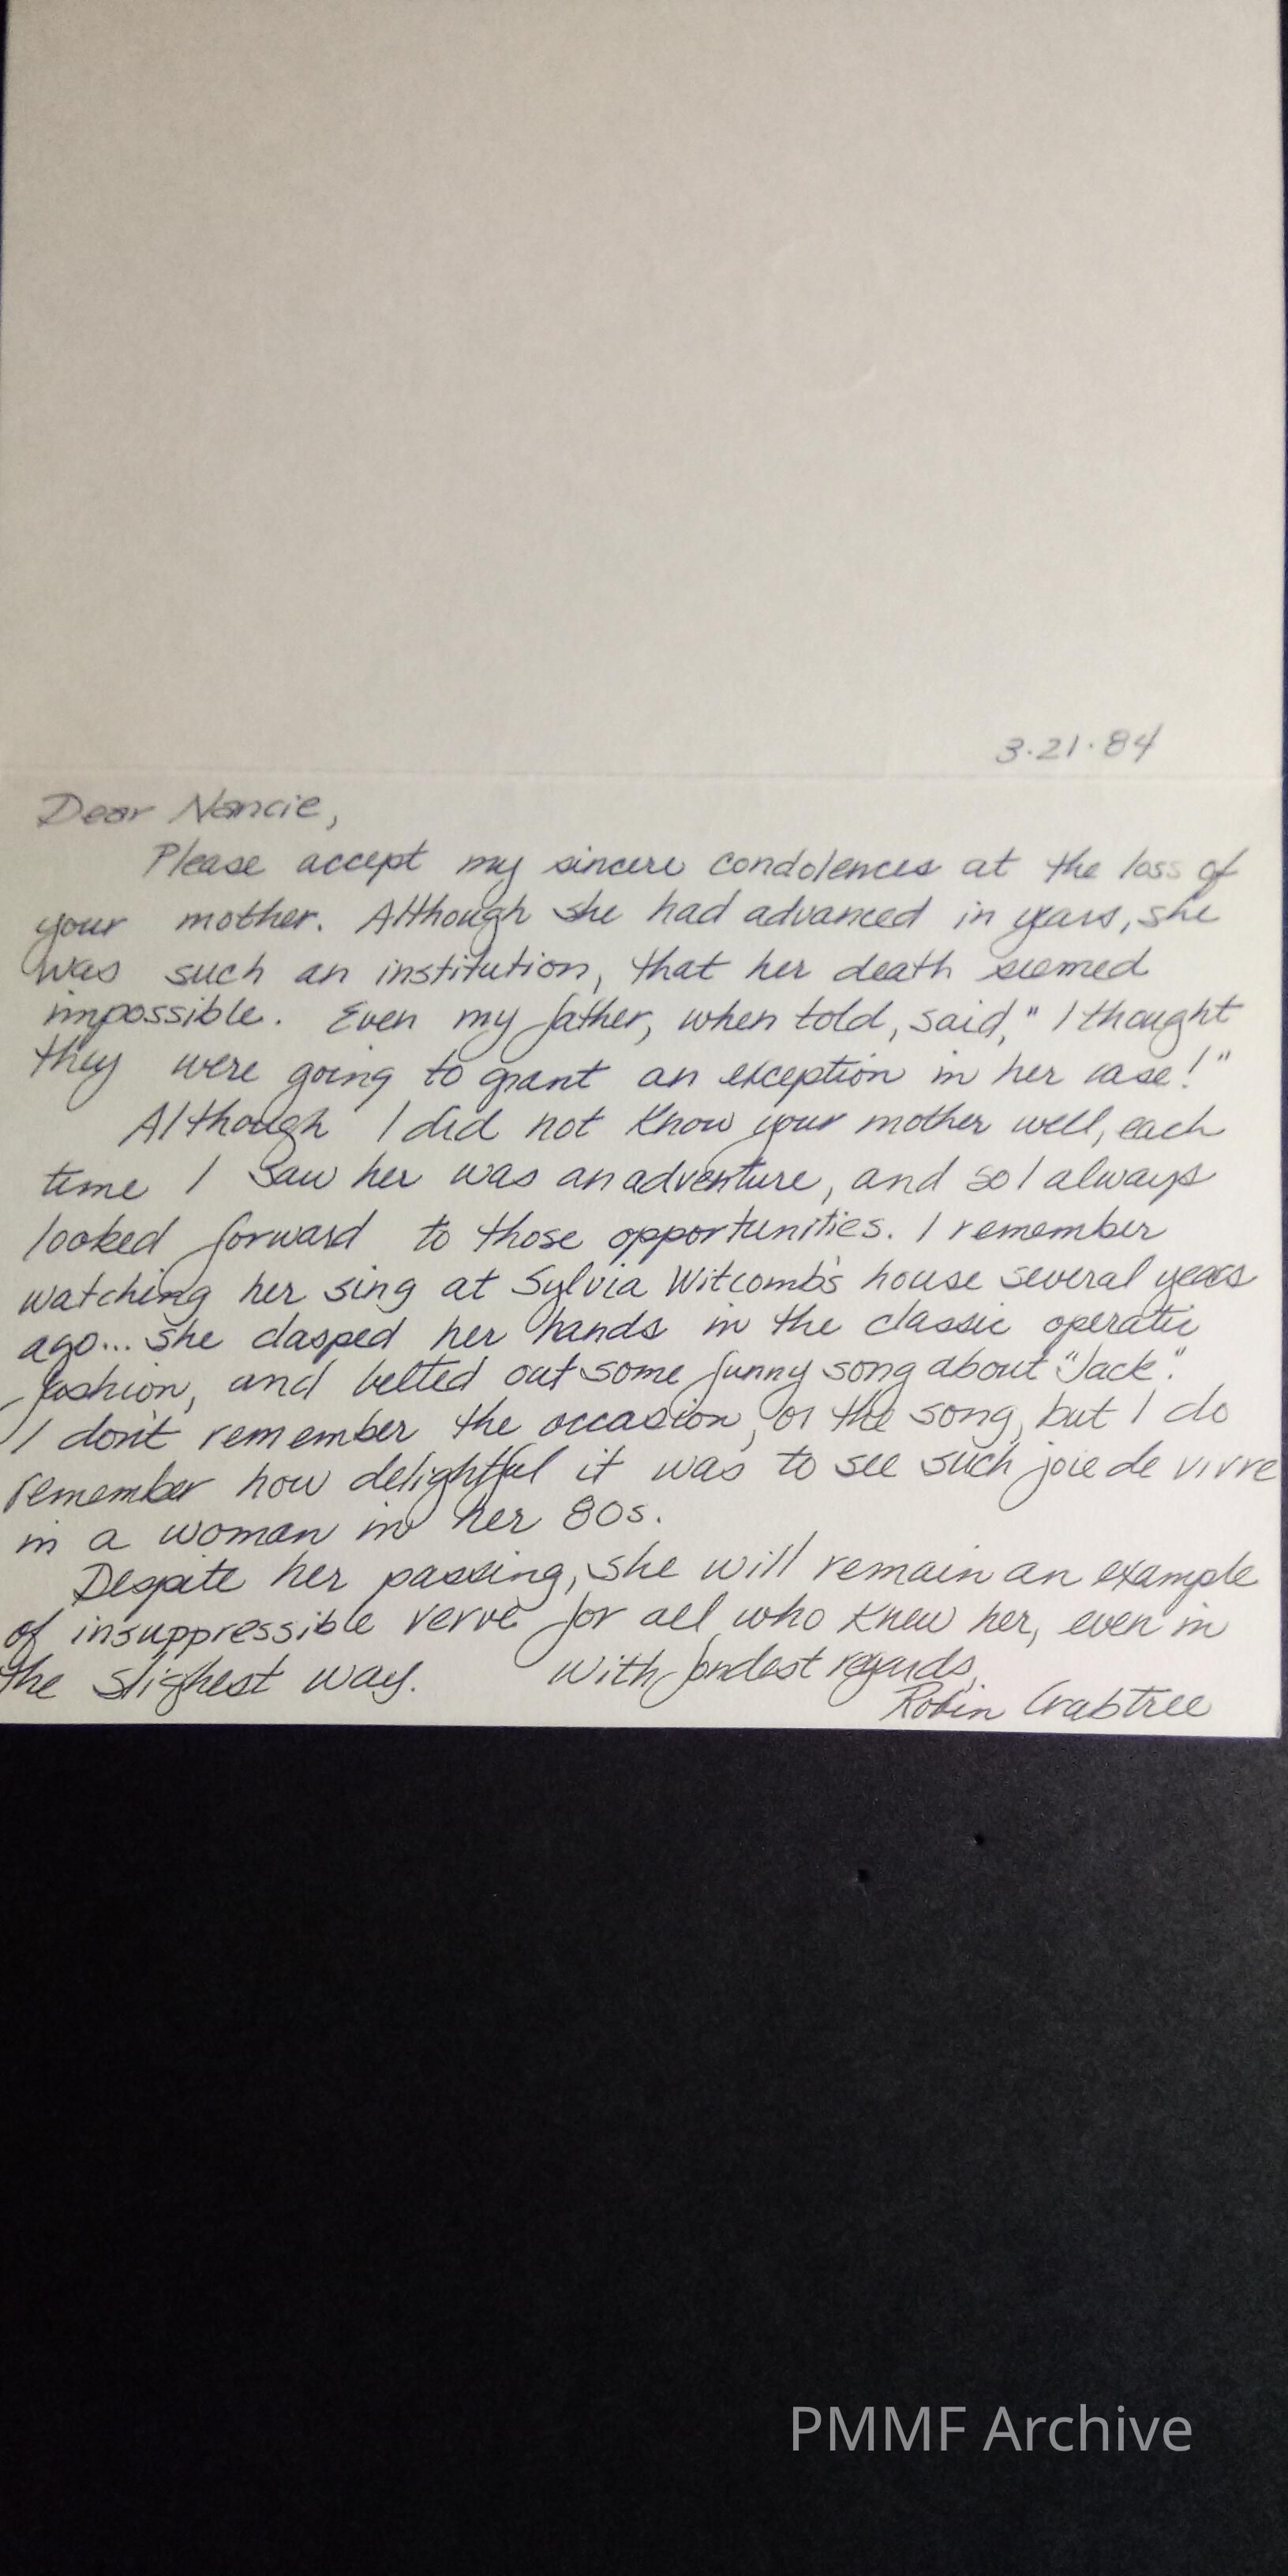 3·21·84
Dear Nancie,
Please accept my sincere condolences at the loss of
your mother. Although she had advanced in years, she
was such an institution, that her death seemed
impossible. Even my father, when told, said, "I thought
they were going to grant an exception in her case!"
Although I did not know your mother well, each
time I saw her was an adventure, and so I always
looked forward to those opportunities. I remember
watching her sing at Sylvia Witcomb's house several years
ago... she clasped her hands in the classic operatic
fashion, and belted out some funny song about "Jack".
I don't remember the occasion, or the song, but I do
remember how delightful it was to see such joie de vivre
in a woman in her 80s.
Despite her passing, she will remain an example
of insuppressible verve for all who knew her, even in
the slighest way. With fondest regards,
Robin Crabtree
PMMF Archive